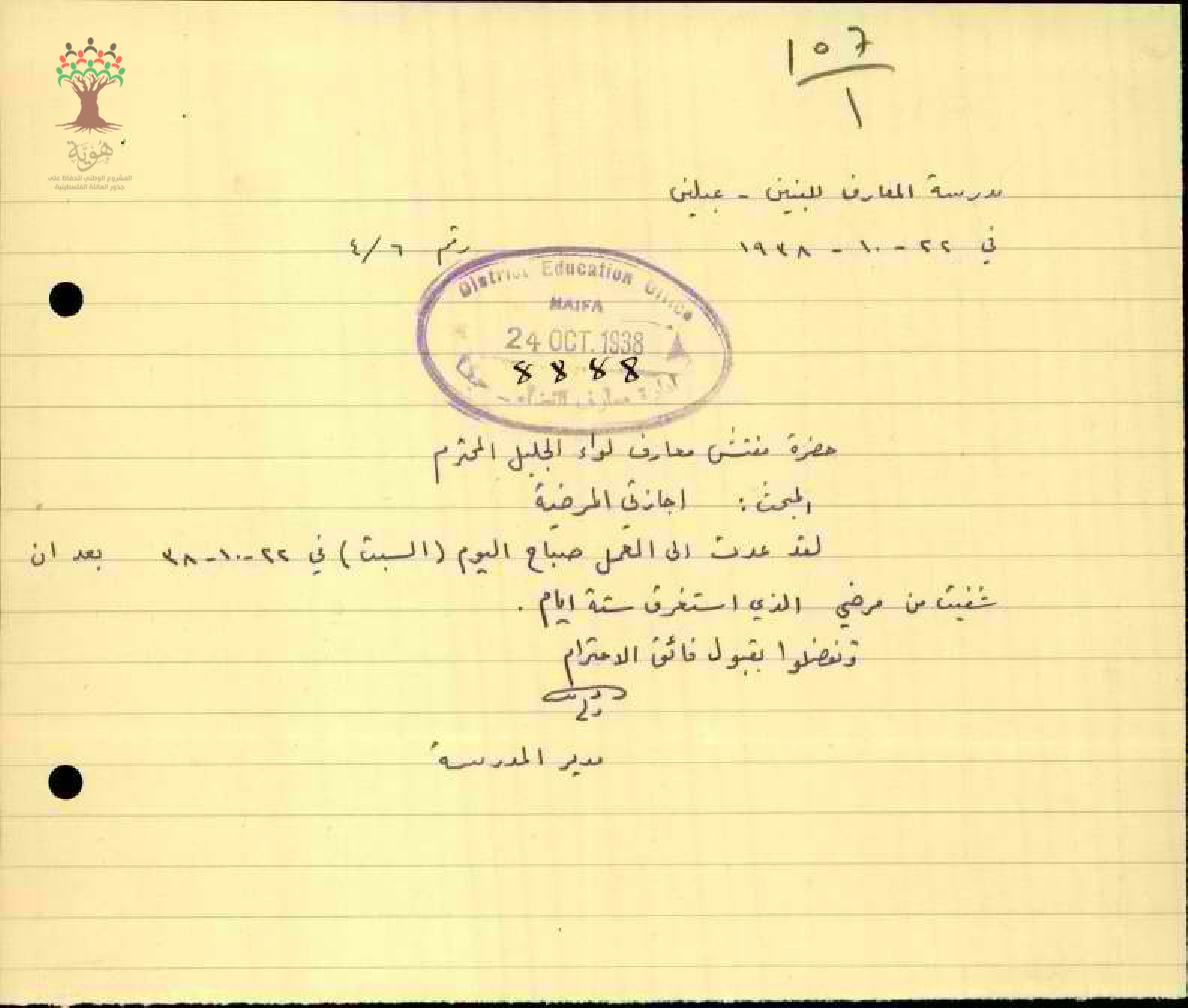 107
1
هوية
المشروع الوطني للحفاظ على
جذور العائلة الفلسطينية
مدرسة المعارف للبنين - عبلين
في ٢٢ - ١٠ - ١٩٣٨ رقم ٤/٦
District Education Office
HAIFA
24 OCT. 1938
8888
ادارة معارف القضاء - حيفا
حضرة مفتش معارف لواء الجليل المحترم
المبحث: اجازتي المرضية
لقد عدت الى العمل صباح اليوم (السبت) في ٢٢-١٠-٣٨ بعد ان
شفيت من مرضي الذي استغرق ستة ايام.
وتفضلوا بقبول فائق الاحترام
مدير المدرسة